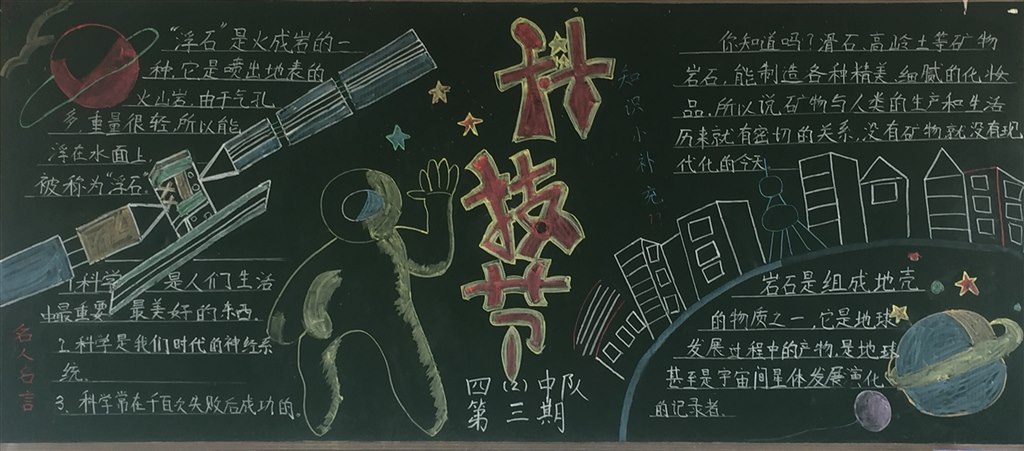 “浮石”是火成岩的一
种,它是喷出地表的
火山岩,由于气孔
多,重量很轻,所以能
浮在水面上,
被称为“浮石”。
1.科学 是人们生活
中最重要 最美好的东西。
2.科学是我们时代的神经系
统。
3.科学常在千百次失败后成功的。
名人名言
科技节
四(2)中队
第三期
知识小补充??
你知道吗?滑石、高岭土等矿物
岩石,能制造各种精美、细腻的化妆
品,所以说矿物与人类的生产和生活
历来就有密切的关系,没有矿物就没有现
代化的今天
岩石是组成地壳
的物质之一,它是地球
发展过程中的产物,是地球
甚至是宇宙间星体发展演化
的记录者。